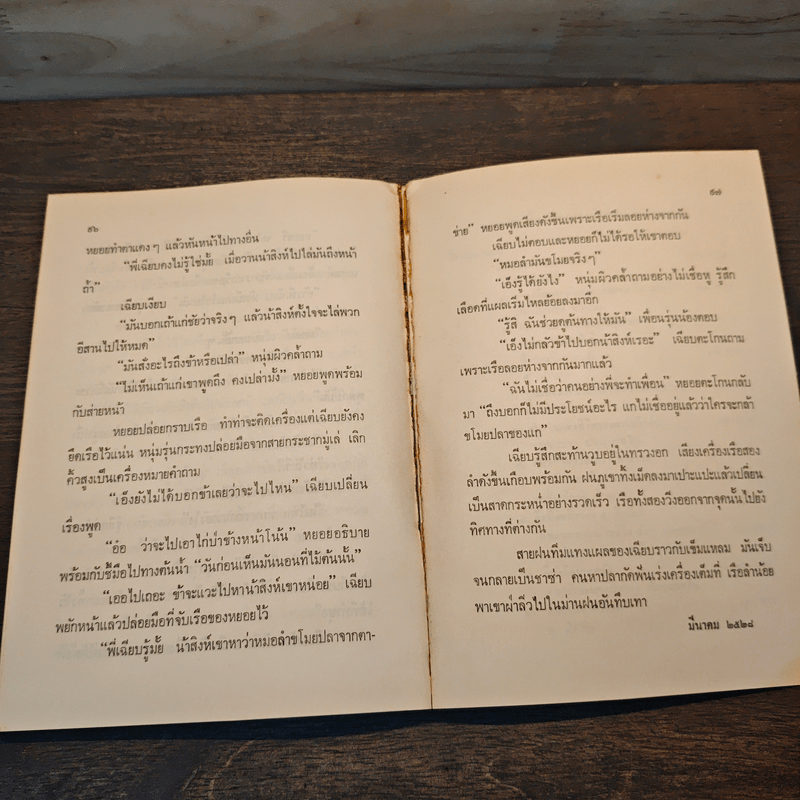 ๕๖
หยอยทำตาแดงๆ แล้วหันหน้าไปทางอื่น
“พี่เฉียบคงไม่รู้ใช่มั้ย เมื่อวานน้าสิงห์ไปไล่มันถึงหน้า
ถ้ำ”
เฉียบเงียบ
“มันบอกเถ้าแก่ชัยว่าจริงๆ แล้วน้าสิงห์ตั้งใจจะไล่พวก
อีสานไปให้หมด”
“มันสั่งอะไรถึงข้าหรือเปล่า” หนุ่มผิวคล้ำถาม
“ไม่เห็นเถ้าแก่เขาพูดถึง คงเปล่ามั้ง” หยอยพูดพร้อม
กับส่ายหน้า
หยอยปล่อยกราบเรือ ทำท่าจะติดเครื่องแต่เฉียบยังคง
ยึดเรือไว้แน่น หนุ่มรุ่นกระทงปล่อยมือจากสายกระชากมู่เล่ เลิก
คิ้วสูงเป็นเครื่องหมายคำถาม
“เอ็งยังไม่ได้บอกข้าเลยว่าจะไปไหน” เฉียบเปลี่ยน
เรื่องพูด
“อ๋อ ว่าจะไปเอาไก่ป่าข้างหน้าโน้น” หยอยอธิบาย
พร้อมกับชี้มือไปทางต้นน้ำ “วันก่อนเห็นมันนอนที่ไม้ต้นนั้น”
“เออไปเถอะ ข้าจะแวะไปหาน้าสิงห์เขาหน่อย” เฉียบ
พยักหน้าแล้วปล่อยมือที่จับเรือของหยอยไว้
“พี่เฉียบรู้มั้ย น้าสิงห์เขาหาว่าหมอลำขโมยปลาจากตา-
๕๗
ข่าย” หยอยพูดเสียงดังขึ้นเพราะเรือเริ่มลอยห่างจากกัน
เฉียบไม่ตอบและหยอยก็ไม่ได้รอให้เขาตอบ
“หมอลำมันขโมยจริงๆ”
“เอ็งรู้ได้ยังไง” หนุ่มผิวคล้ำถามอย่างไม่เชื่อหู รู้สึก
เลือดที่แผลเริ่มไหลย้อยลงมาอีก
“รู้สิ ฉันช่วยดูต้นทางให้มัน” เพื่อนรุ่นน้องตอบ
“เอ็งไม่กลัวข้าไปบอกน้าสิงห์เรอะ” เฉียบตะโกนถาม
เพราะเรือลอยห่างจากกันมากแล้ว
“ฉันไม่เชื่อว่าคนอย่างพี่จะทำเพื่อน” หยอยตะโกนกลับ
มา “ถึงบอกก็ไม่มีประโยชน์อะไร แกไม่เชื่ออยู่แล้วว่าใครจะกล้า
ขโมยปลาของแก”
เฉียบรู้สึกสะท้านวูบอยู่ในทรวงอก เสียงเครื่องเรือสอง
ลำดังขึ้นเกือบพร้อมกัน ฝนภูเขาทิ้งเม็ดลงมาเปาะแปะแล้วเปลี่ยน
เป็นสาดกระหน่ำอย่างรวดเร็ว เรือทั้งสองวิ่งออกจากจุดนั้นไปยัง
ทิศทางที่ต่างกัน
สายฝนทิ่มแทงแผลของเฉียบราวกับเข็มแหลม มันเจ็บ
จนกลายเป็นชาซ่า คนหาปลากัดฟันเร่งเครื่องเต็มที่ เรือลำน้อย
พาเขาฝ่าลิ่วไปในม่านฝนอันทึบเทา
มีนาคม ๒๕๒๘